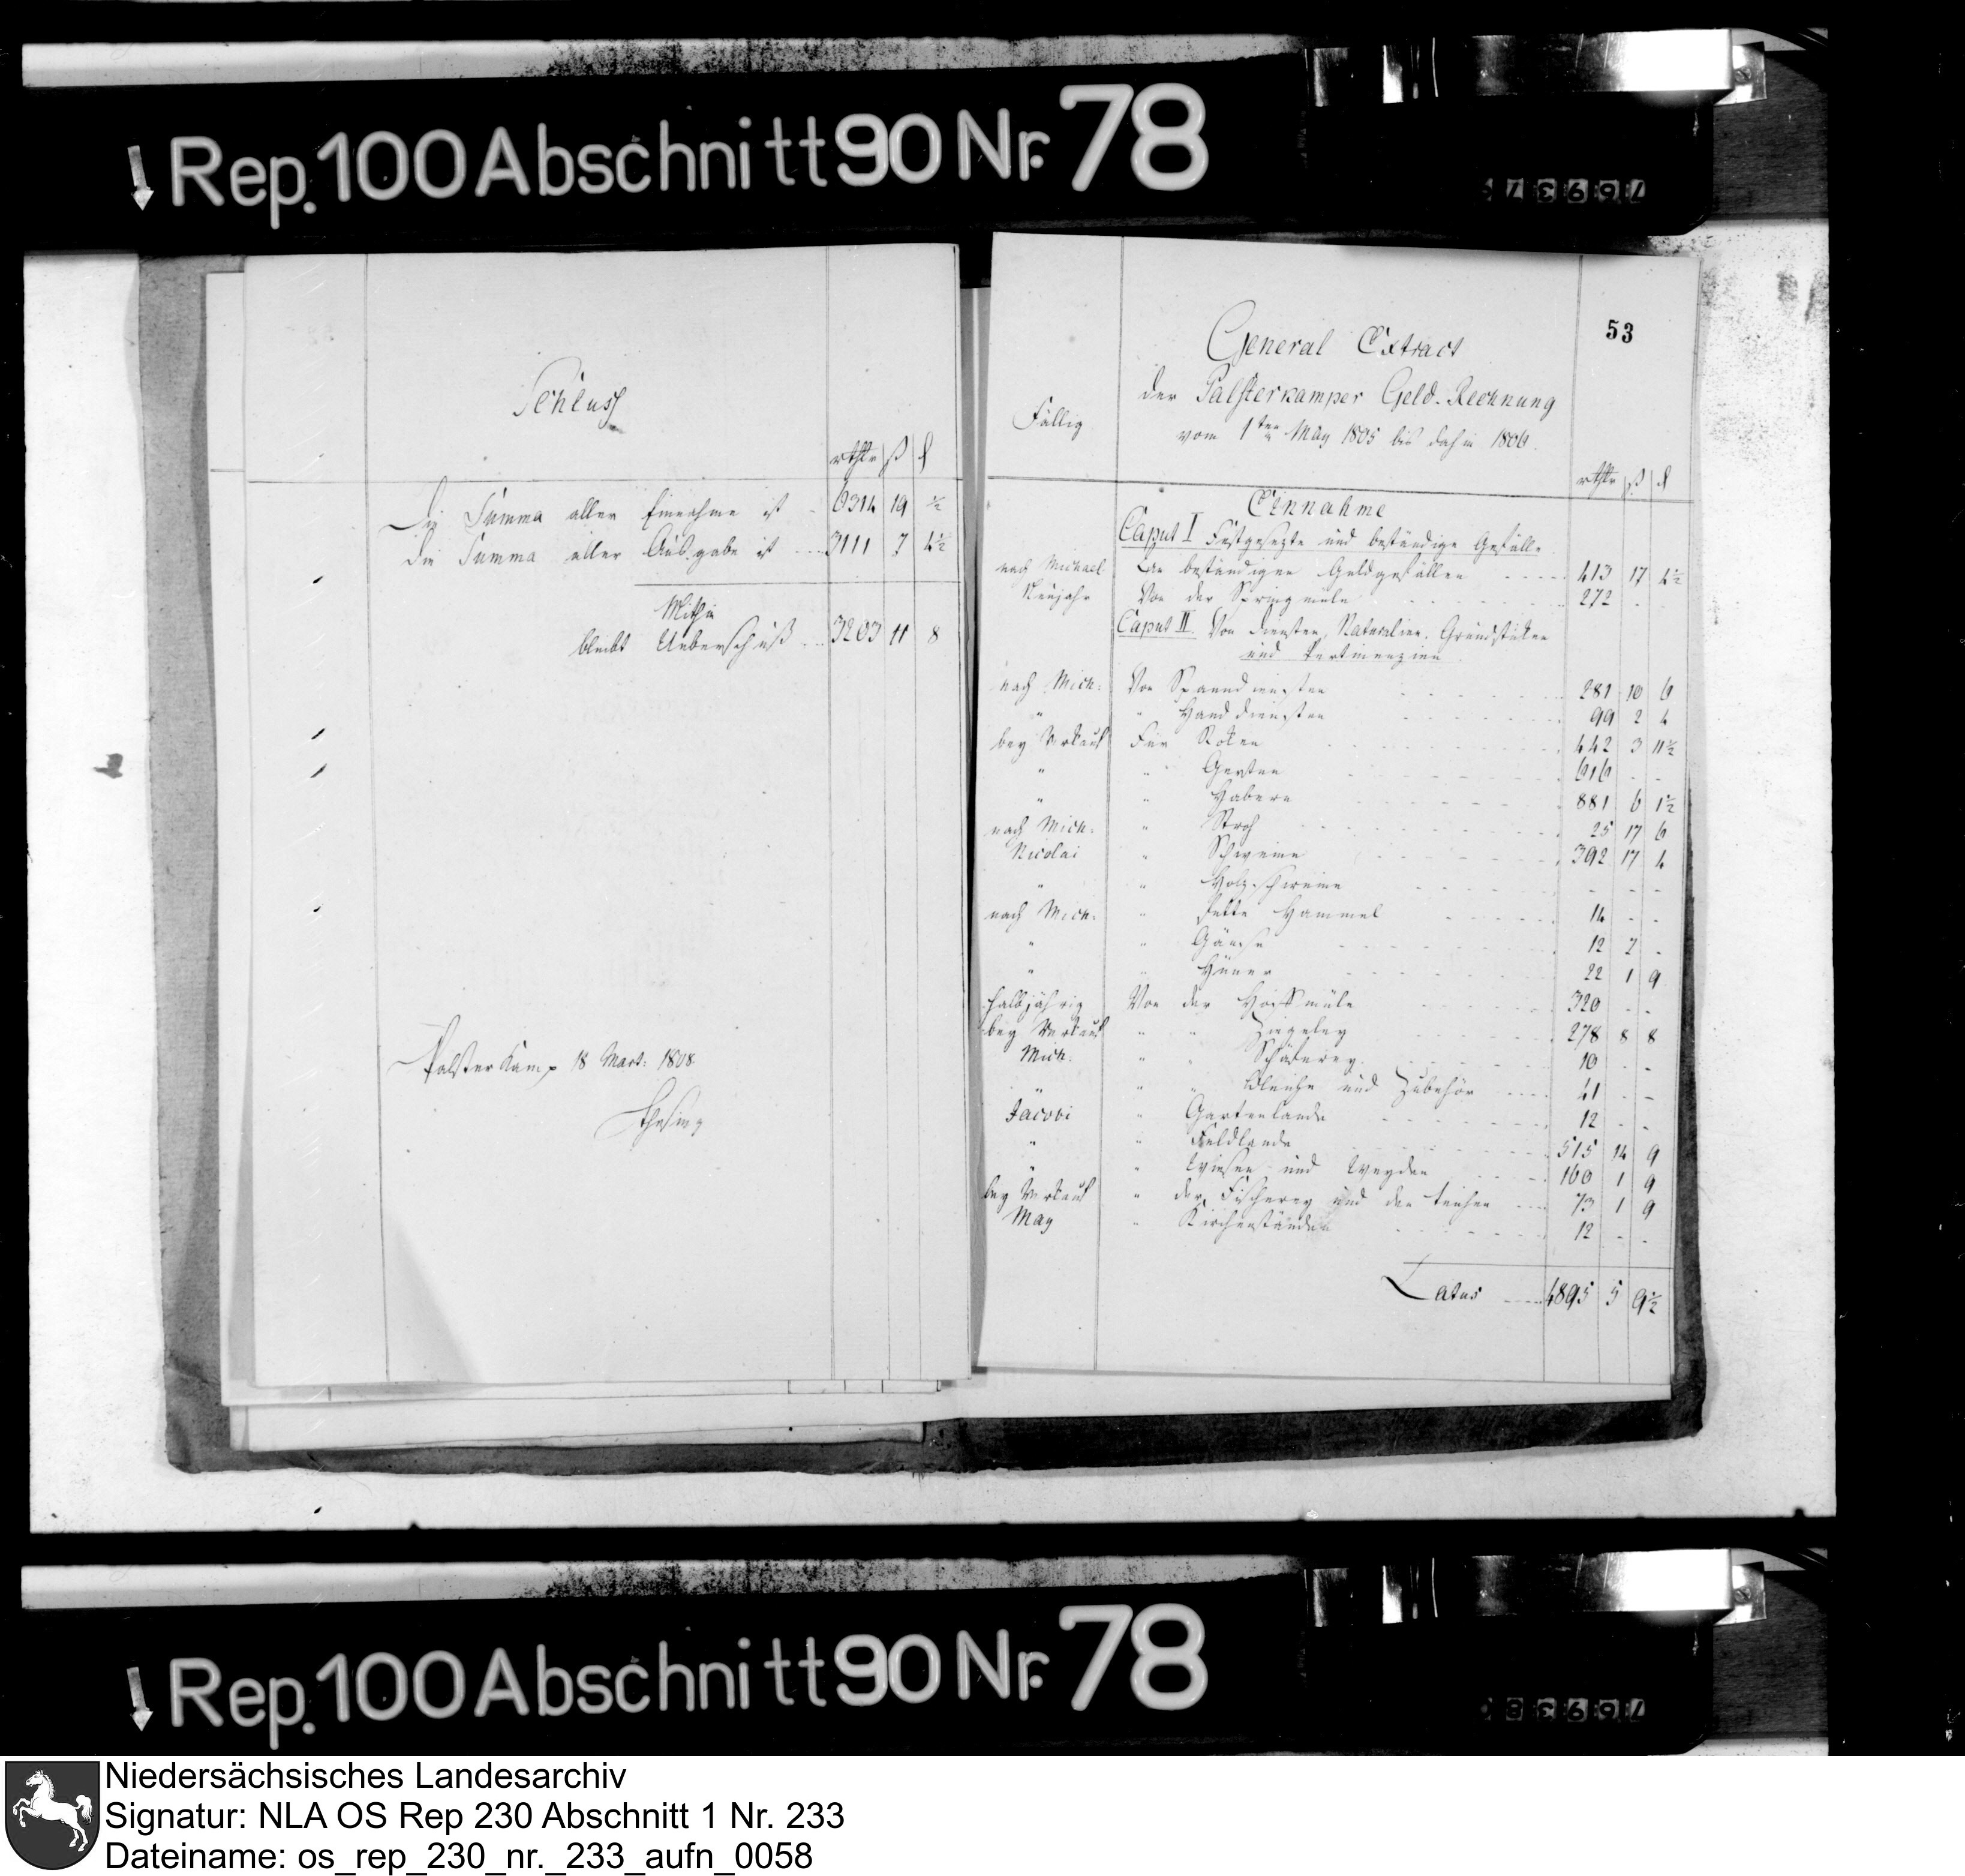 Rep. 100 Abschnitt 90 Nr. 78
Schluss
rthlr ß ₰
Die Summa aller Einnahme ist 6314 19 ½
Die Summa aller Ausgabe ist 3111 7 4½
Mithin
bleibt Ueberschuß 3203 11 8
Palsterkamp 18 Mart: 1808
53
General Extract
der Palsterkamper Geld-Rechnung
Fällig
vom 1ten May 1805 bis dahin 1806.
rthlr ß ₰
Einnahme
Caput I Festgesezte und beständige Gefälle
nach Michael An beständigen Geldgefällen 413 17 4½
Neujahr Von der Springmüle 272 - -
Caput II. Von Diensten, Naturalien, Grundstüken
und Pertinenzien
nach Mich: Von Spanndiensten 281 10 6
" " Handdiensten 99 2 4
bey Verkauf Für Roken 442 3 11½
" " Gersten 616 - -
" " Habern 881 6 1½
nach Mich: " Stroh 25 17 6
Nicolai " Schweine 392 17 4
" " Holzschweine - - -
nach Mich: " Fette Hammel 14 - -
" " Gänse 12 7 -
" " Hüner 22 1 9
halbjährig Von der müle 320 - -
bey Verkauf " " Ziegeley 278 8 8
Mich: " " Schäferey 10 - -
" " " Bleiche und Zubehör 41 - -
Jacobi " Gartenlande 12 - -
" " Feldlande 515 14 9
" " Wiesen und Weyden 160 1 9
bey Verkauf " der Fischerey und den Teichen 73 1 9
May " Kirchenständen 12 - -
Latus 4895 5 9½
Rep. 100 Abschnitt 90 Nr. 78
Niedersächsisches Landesarchiv
Signatur: NLA OS Rep 230 Abschnitt 1 Nr. 233
Dateiname: os_rep_230_nr._233_aufn_0058